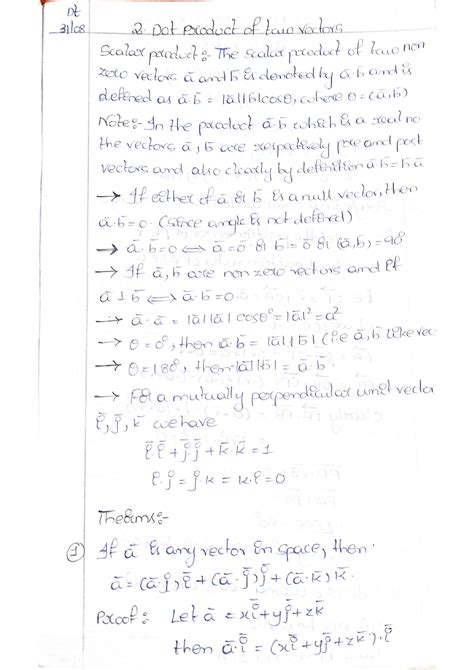 Dt
31/08
2. Dot product of two vectors
Scalar product :- The scalar product of two non
zero vectors ā and b̄ is denoted by ā·b̄ and is
defined as ā·b̄ = |ā||b̄|cosθ, where θ = (ā,b̄)
Note:- In the product ā·b̄ which is a real no
the vectors ā, b̄ are respectively pre and post
vectors and also clearly by definition ā·b̄ = b̄·ā
→ If either of ā or b̄ is a null vector, then
ā·b̄ = 0. (since angle is not defined)
→ ā·b̄=0 ⟺ ā=ō or b̄=ō or (ā,b̄)=90°
→ If ā, b̄ are non zero vectors and if
ā ⊥ b̄ ⟺ ā·b̄ = 0
→ ā·ā = |ā||ā| cos0° = |ā|² = a²
→ θ = 0°, then ā·b̄ = |ā||b̄| (i.e ā,b̄ like vec
→ θ = 180°, then |ā||b̄| = ā·b̄.
→ For a mutually perpendicular unit vector
ī, j̄, k̄ we have
ī·ī + j̄·j̄ + k̄·k̄ = 1
i·j̄ = j̄·k = k·i = 0
Theorms:-
① If ā is any vector in space, then
ā = (ā·j̄)ī + (ā·j̄)j̄ + (ā·k̄)k̄.
Proof :- Let ā = xī + yj̄ + zk̄
then ā·ī = (xī + yj̄ + zk̄)·ī